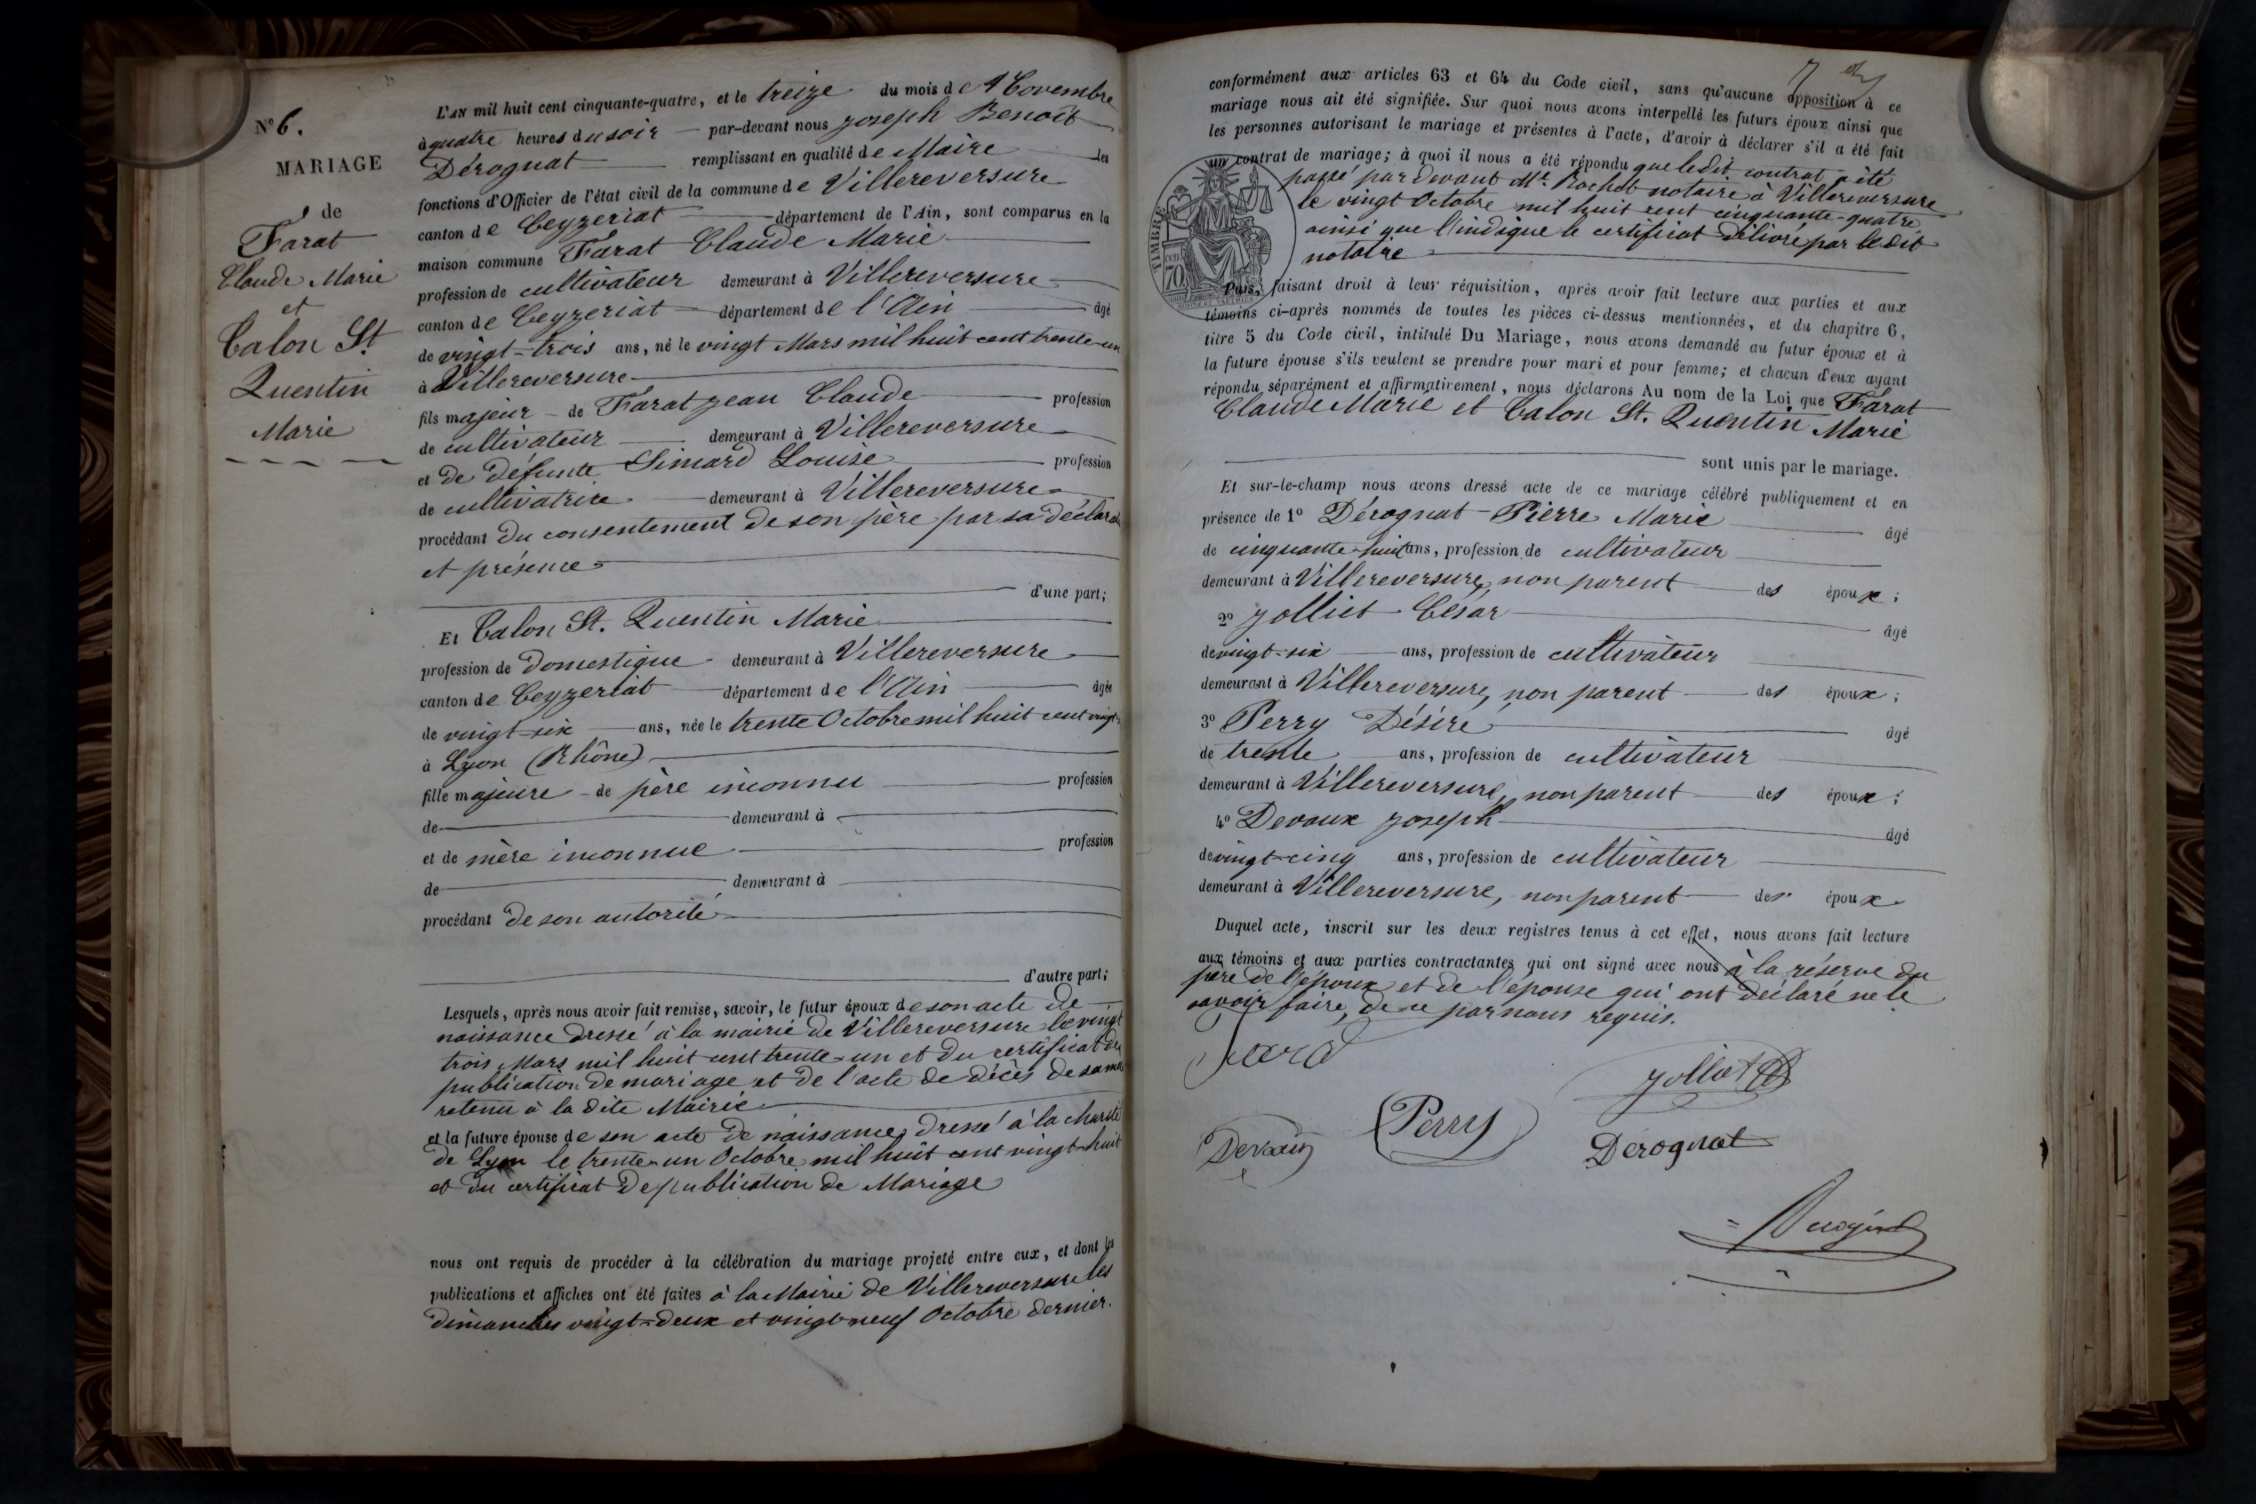 N° 6.
MARIAGE
de
Farat
Claude Marie
et
Calon St.
Quentin
Marie
L'AN mil huit cent cinquante-quatre, et le treize du mois de Novembre
à quatre heures du soir par-devant nous Joseph Benoît
Dérognat remplissant en qualité de Maire les
fonctions d'Officier de l'état civil de la commune de Villereversure
canton de Ceyzeriat département de l'Ain, sont comparus en la
maison commune Farat Claude Marie
profession de cultivateur demeurant à Villereversure
canton de Ceyzeriat département de l'Ain âgé
de vingt-trois ans, né le vingt Mars mil huit cent trente-un
à Villereversure
fils majeur de Farat Jean Claude profession
de cultivateur demeurant à Villereversure
et de défunte Simard Louise profession
de cultivatrice demeurant à Villereversure
procédant du consentement de son père par sa déclarat
et présence
d'une part;
Et Calon St. Quentin Marie
profession de Domestique demeurant à Villereversure
canton de Ceyzeriat département de l'Ain âgée
de vingt-six ans, née le trente Octobre mil huit cent vingt-
à Lyon (Rhône)
fille majeure de père inconnu profession
de demeurant à
et de mère inconnue profession
de demeurant à
procédant de son autorité
d'autre part;
Lesquels, après nous avoir fait remise, savoir, le futur époux de son acte de
naissance dressé à la mairie de Villereversure le vingt
trois Mars mil huit cent trente-un et du certificat de
publication de mariage et de l'acte de décès de sa mè
retenu à la dite Mairie
et la future épouse de son acte de naissance dressé à la charité
de Lyon le trente-un Octobre mil huit cent vingt-huit
et du certificat de publication de Mariage
nous ont requis de procéder à la célébration du mariage projeté entre eux, et dont les
publications et affiches ont été faites à la Mairie de Villereversure les
dimanches vingt-deux et vingt-neuf Octobre dernier.
conformément aux articles 63 et 64 du Code civil, sans qu'aucune opposition à ce
mariage nous ait été signifiée. Sur quoi nous avons interpellé les futurs époux ainsi que
les personnes autorisant le mariage et présentes à l'acte, d'avoir à déclarer s'il a été fait
un contrat de mariage; à quoi il nous a été répondu que le dit contrat a été
passé par devant Me. Rochet notaire à Villereversure
le vingt Octobre mil huit cent cinquante-quatre
ainsi que l'indique le certificat délivré par le dit
notaire
TIMBRE
70
Puis, faisant droit à leur réquisition, après avoir fait lecture aux parties et aux
témoins ci-après nommés de toutes les pièces ci-dessus mentionnées, et du chapitre 6,
titre 5 du Code civil, intitulé Du Mariage, nous avons demandé au futur époux et à
la future épouse s'ils veulent se prendre pour mari et pour femme; et chacun d'eux ayant
répondu séparément et affirmativement, nous déclarons Au nom de la Loi que Farat
Claude Marie et Calon St. Quentin Marie
sont unis par le mariage.
Et sur-le-champ nous avons dressé acte de ce mariage célébré publiquement et en
présence de 1° Dérognat Pierre Marie âgé
de cinquante-huit ans, profession de cultivateur
demeurant à Villereversure, non parent des époux;
2° Jolliet César âgé
de vingt-six ans, profession de cultivateur
demeurant à Villereversure, non parent des époux;
3° Perry Désiré âgé
de trente ans, profession de cultivateur
demeurant à Villereversure, non parent des époux;
4° Devaux Joseph âgé
de vingt-cinq ans, profession de cultivateur
demeurant à Villereversure, non parent des époux
Duquel acte, inscrit sur les deux registres tenus à cet effet, nous avons fait lecture
aux témoins et aux parties contractantes qui ont signé avec nous à la réserve du
père de l'époux et de l'épouse qui ont déclaré ne le
savoir faire, de ce par nous requis.
Jolliet
Perry
Devaux
Dérognat